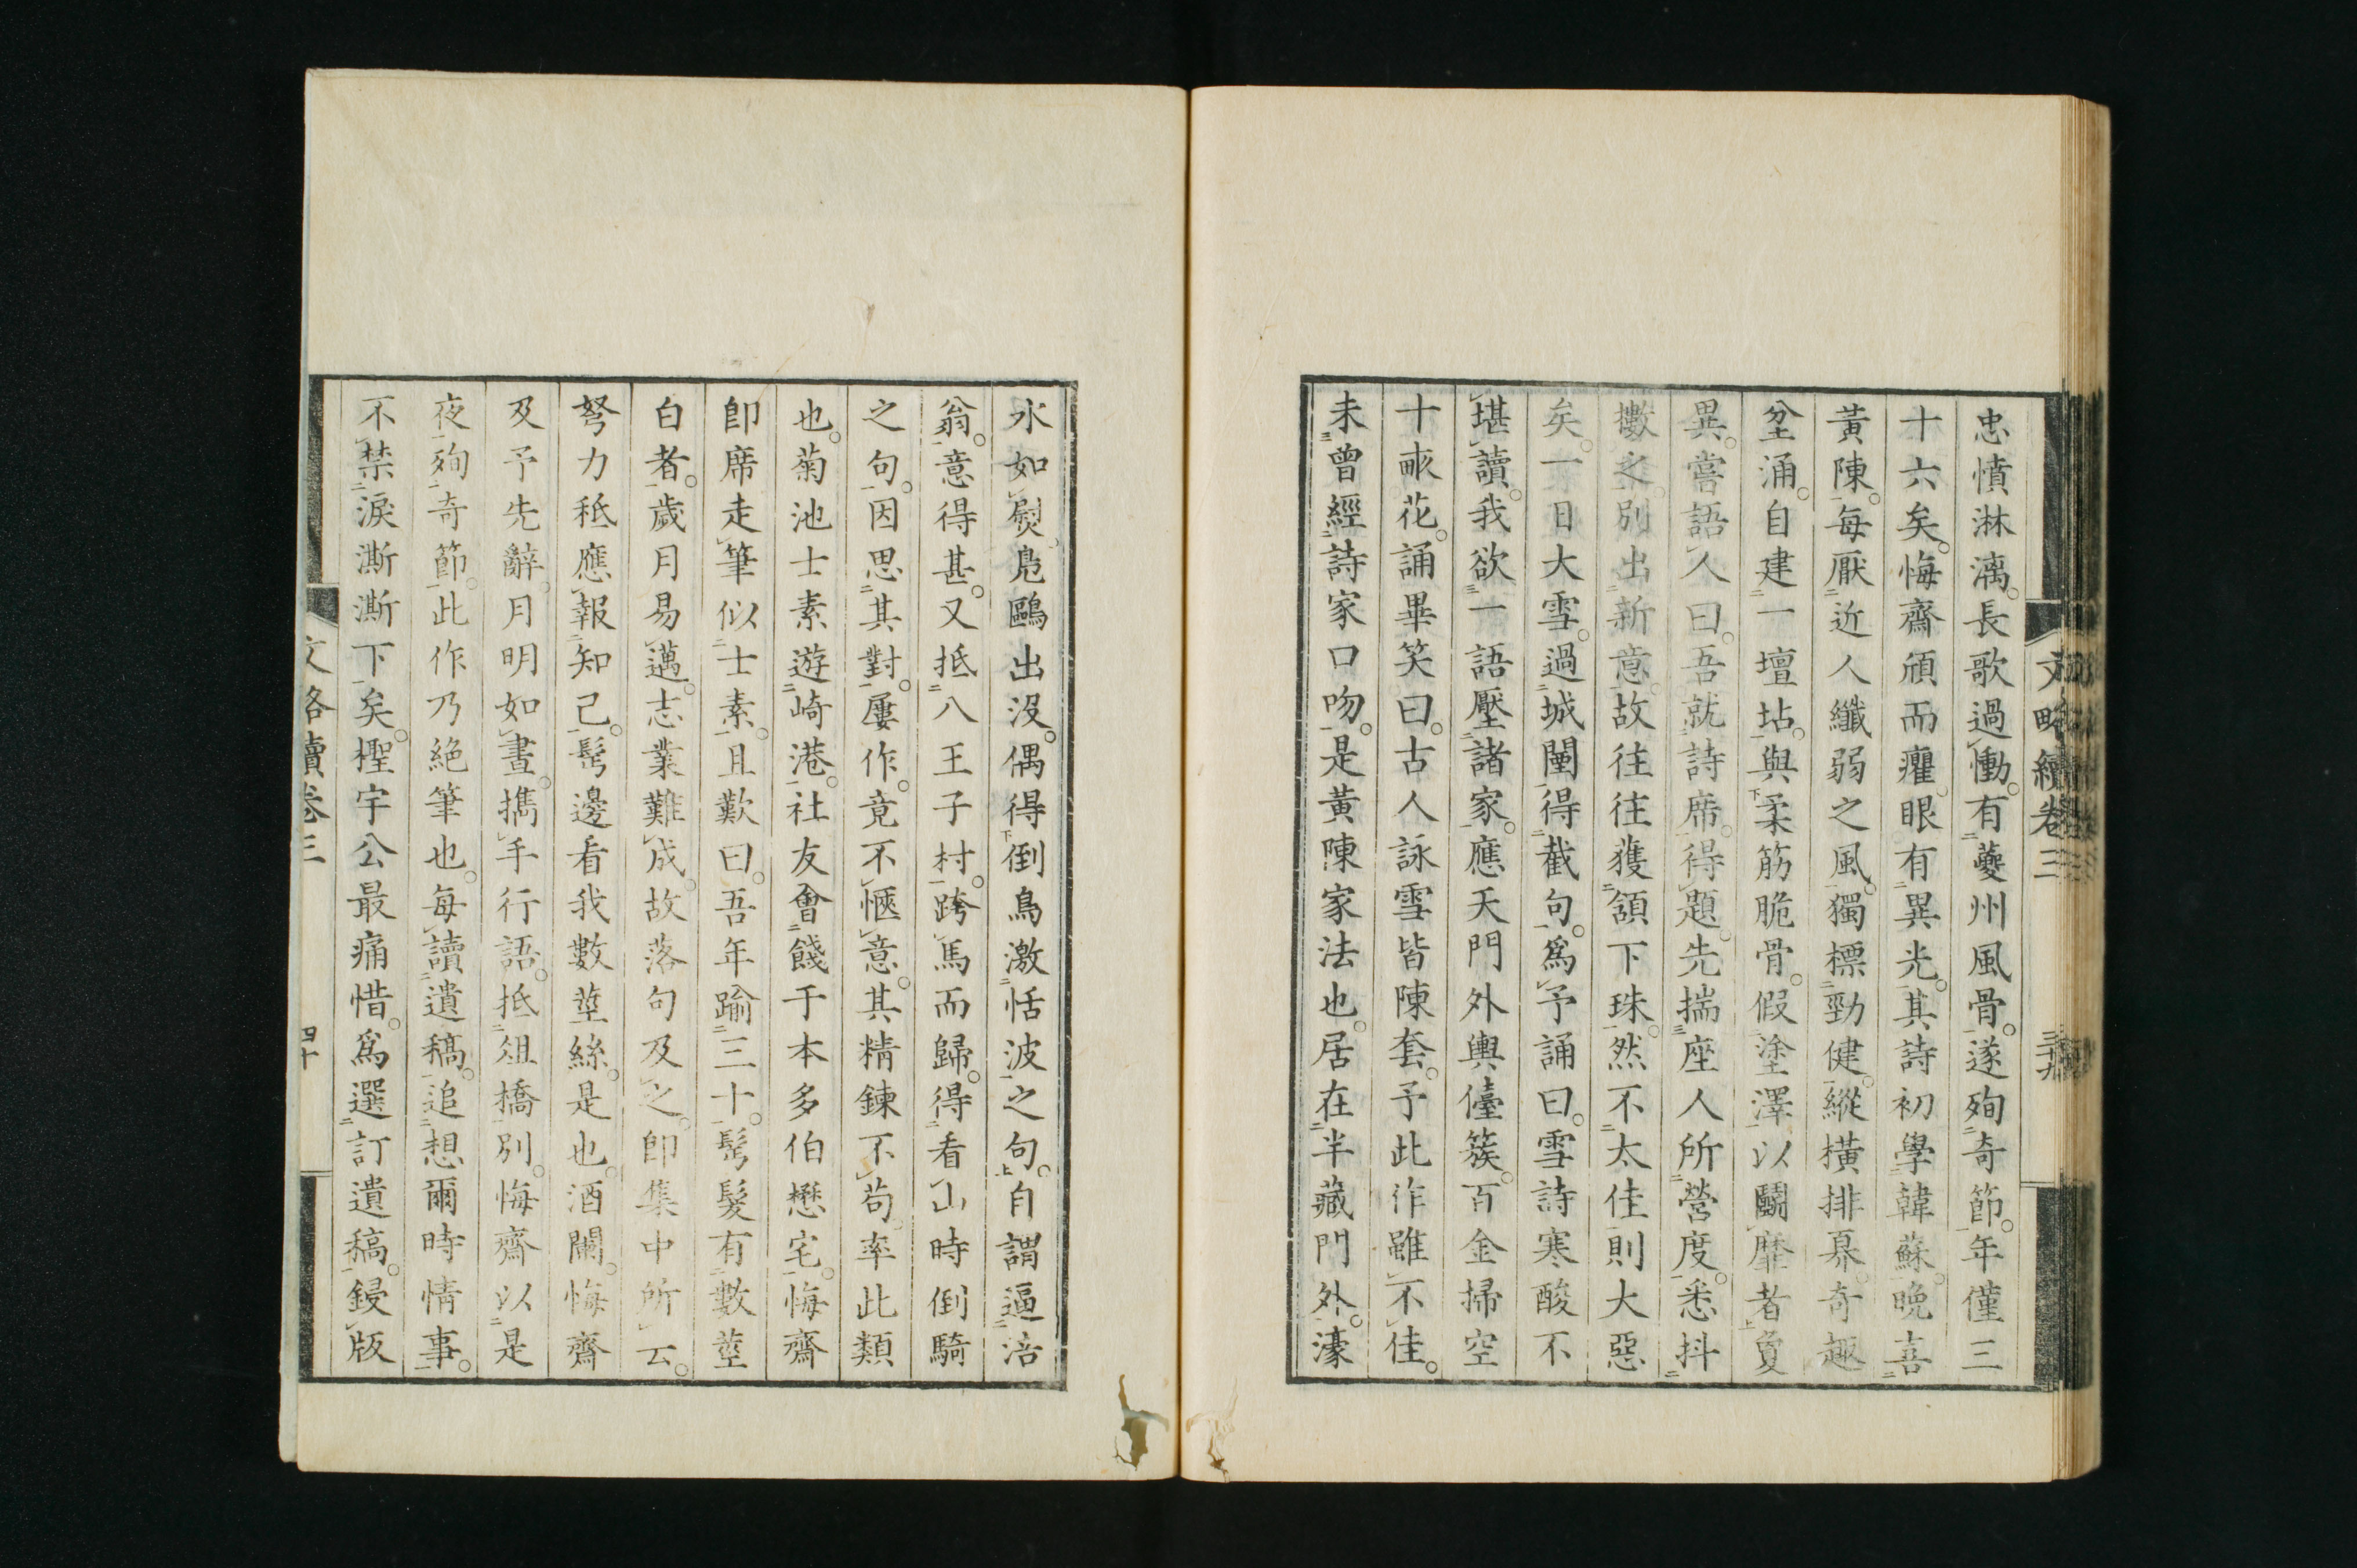 忠憤淋漓。長歌過慟。有夔州風骨。遂殉奇節。年僅三
十六矣。悔齋頎而癯。眼有異光。其詩初學韓蘇。晚喜
黃陳。每厭近人纖弱之風。獨標勁健。縱橫排奡。奇趣
坌涌。自建一壇坫。與柔筋脆骨。假塗澤以鬭靡者夐
異。嘗語人曰。吾就詩席。得題。先揣座人所營度。悉抖
擻之。別出新意。故往往獲頷下珠。然不太佳則大惡
矣。一日大雪。過城闉。得截句。爲予誦曰。雪詩寒酸不
堪讀。我欲一語壓諸家。應天門外輿儓簇。百金掃空
十畝花。誦畢笑曰。古人詠雪皆陳套。予此作雖不佳。
未曾經詩家口吻。是黃陳家法也。居在半藏門外。濠
文略續卷三
三十九
水如熨。鳧鷗出沒。偶得倒鳥激恬波之句。自謂逼涪
翁。意得甚。又抵八王子村。跨馬而歸。得看山時倒騎
之句。因思其對。屢作。竟不愜意。其精鍊不苟。率此類
也。菊池士素遊崎港。社友會餞于本多伯懋宅。悔齋
卽席走筆似士素。且歎曰。吾年踰三十。髩髮有數莖
白者。歲月易邁。志業難成。故落句及之。卽集中所云。
努力秪應報知己。髩邊看我數莖絲。是也。酒闌。悔齋
及予先辭。月明如晝。攜手行語。抵俎橋別。悔齋以是
夜殉奇節。此作乃絕筆也。每讀遺稿。追想爾時情事。
不禁淚澌澌下矣。檉宇公最痛惜。爲選訂遺稿。鋟版
文略續卷三
四十